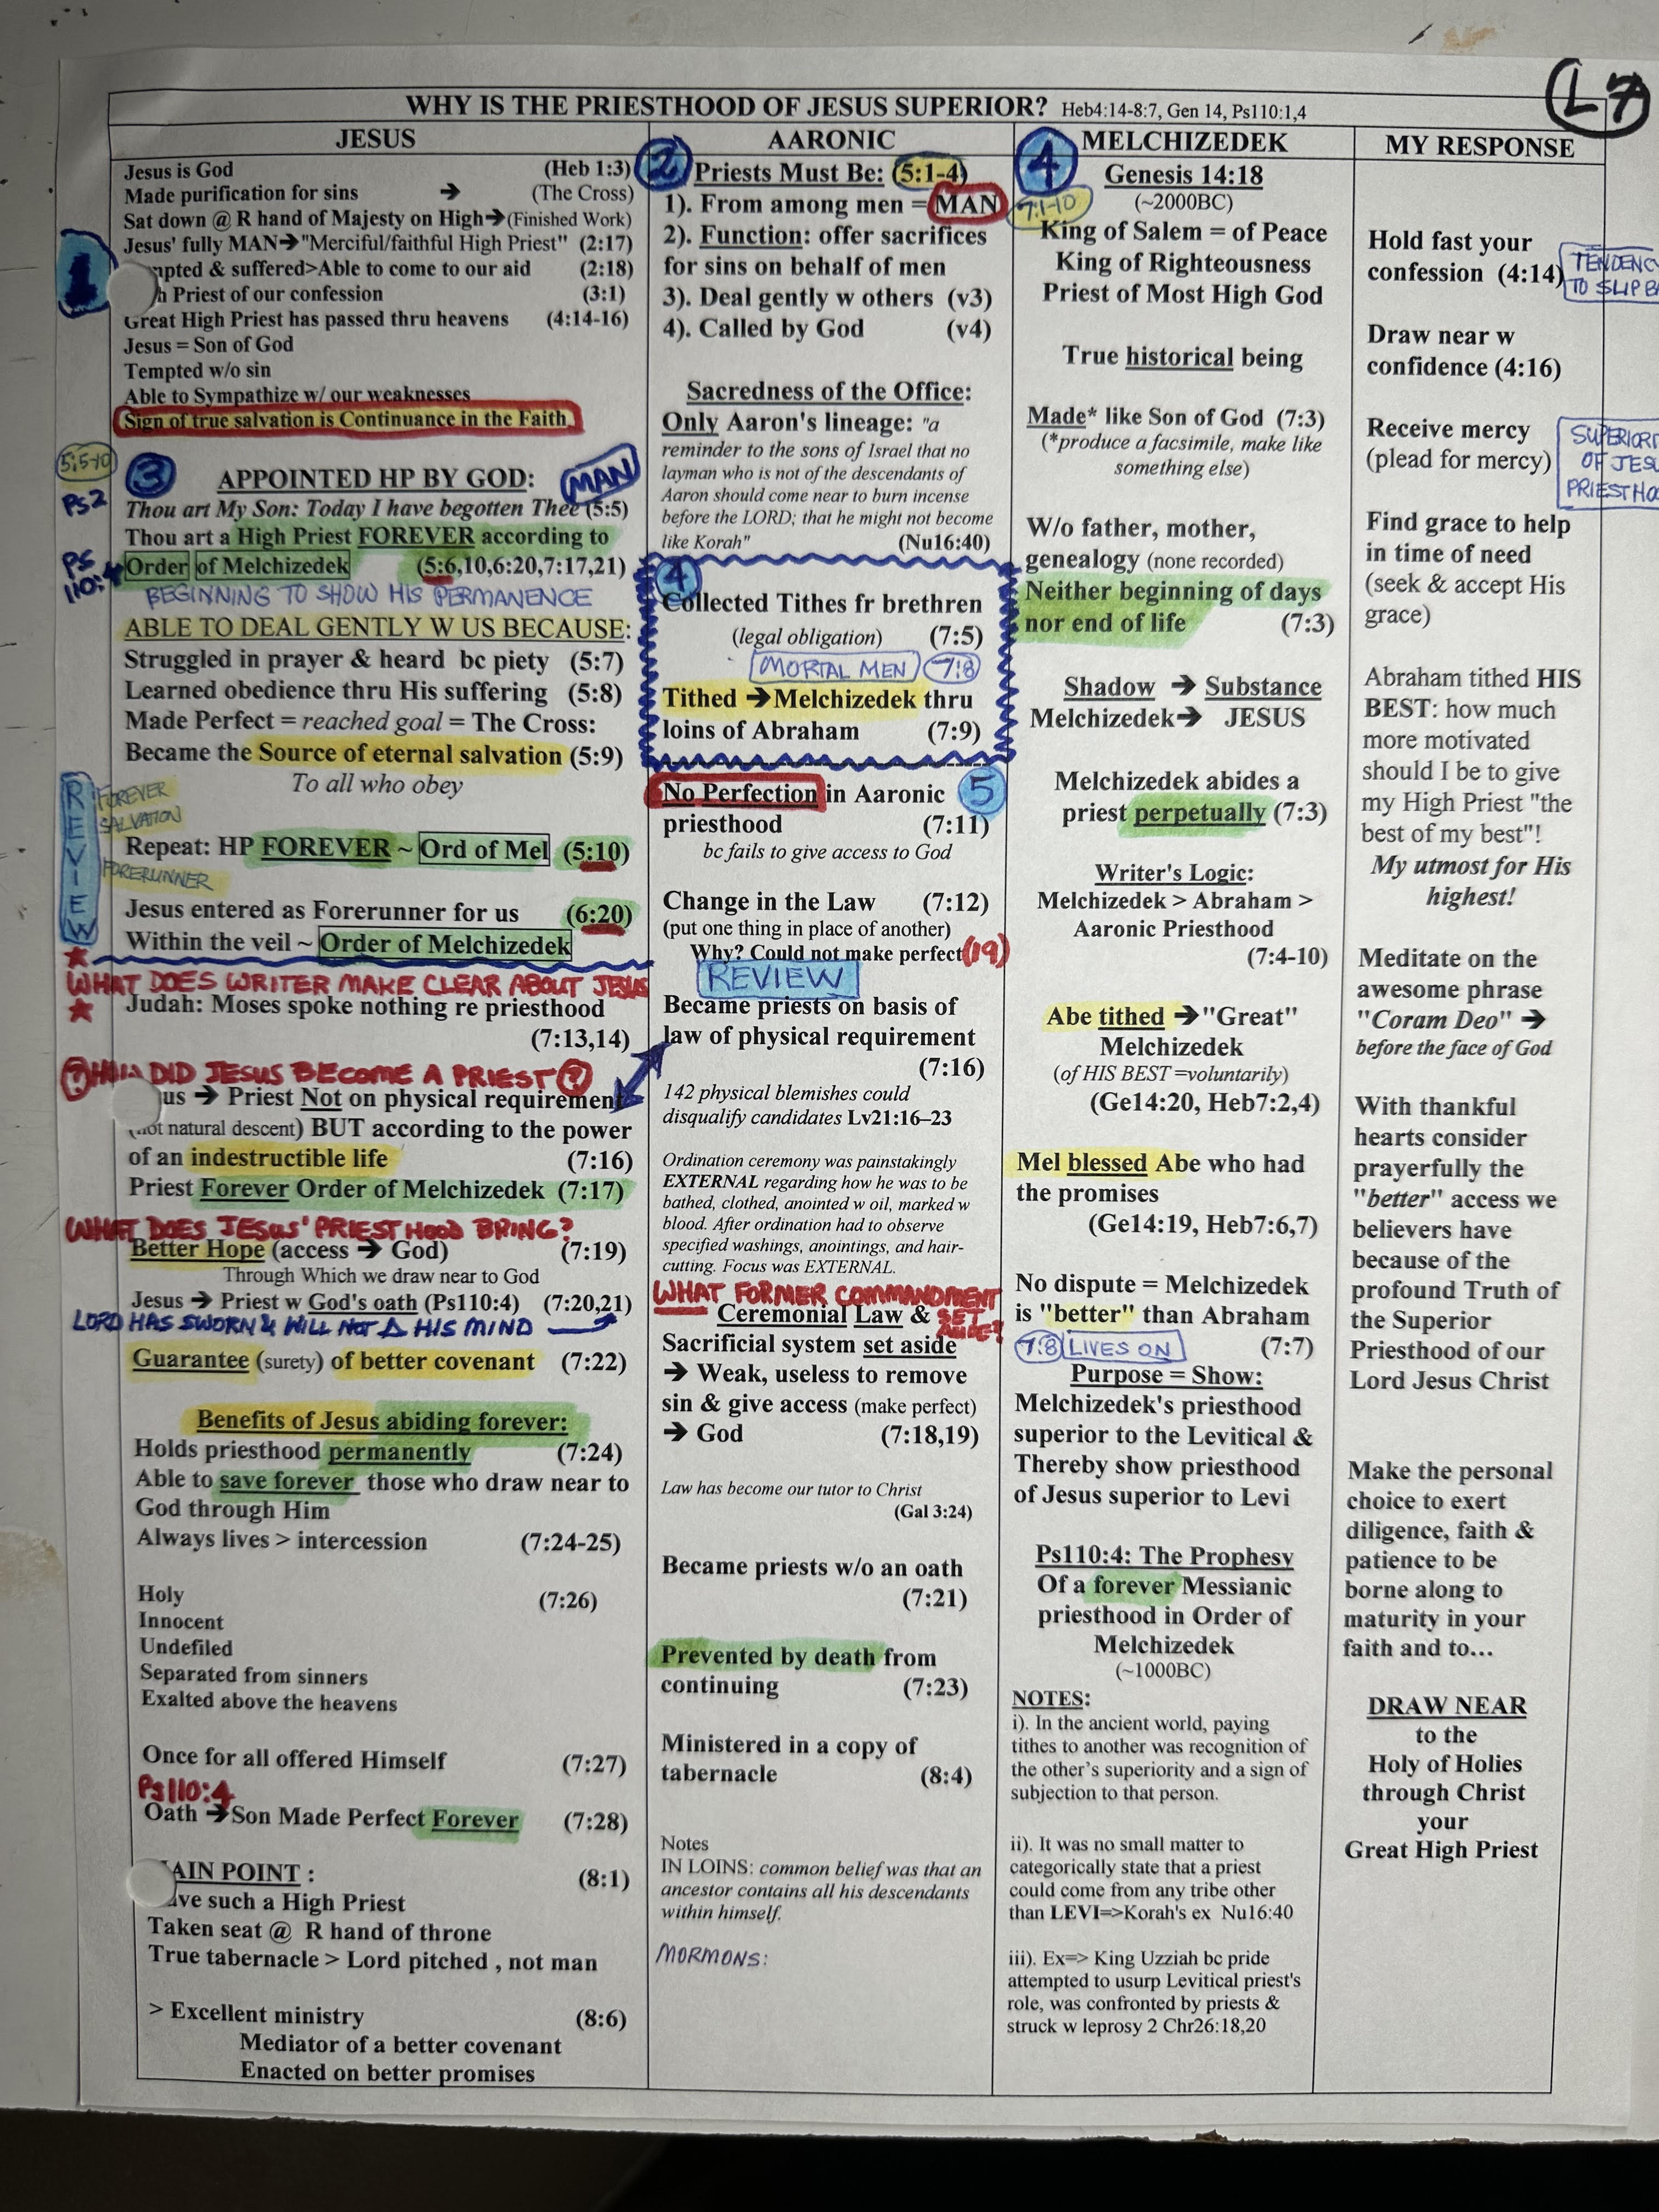 L7
WHY IS THE PRIESTHOOD OF JESUS SUPERIOR? Heb4:14-8:7, Gen 14, Ps110:1,4
JESUS
Jesus is God (Heb 1:3)
Made purification for sins ➔ (The Cross)
Sat down @ R hand of Majesty on High➔(Finished Work)
1
Jesus' fully MAN➔"Merciful/faithful High Priest" (2:17)
mpted & suffered>Able to come to our aid (2:18)
h Priest of our confession (3:1)
Great High Priest has passed thru heavens (4:14-16)
Jesus = Son of God
Tempted w/o sin
Able to Sympathize w/ our weaknesses
Sign of true salvation is Continuance in the Faith
5:5-10
3
APPOINTED HP BY GOD: MAN
PS2
Thou art My Son: Today I have begotten Thee (5:5)
Thou art a High Priest FOREVER according to
PS 110:4
Order of Melchizedek (5:6,10,6:20,7:17,21)
BEGINNING TO SHOW HIS PERMANENCE
ABLE TO DEAL GENTLY W US BECAUSE:
Struggled in prayer & heard bc piety (5:7)
Learned obedience thru His suffering (5:8)
Made Perfect = reached goal = The Cross:
Became the Source of eternal salvation (5:9)
To all who obey
REVIEW
FOREVER
SALVATION
Repeat: HP FOREVER ~ Ord of Mel (5:10)
FORERUNNER
Jesus entered as Forerunner for us (6:20)
Within the veil ~ Order of Melchizedek
WHAT DOES WRITER MAKE CLEAR ABOUT JESUS
Judah: Moses spoke nothing re priesthood
(7:13,14)
DID JESUS BECOME A PRIEST?
us ➔ Priest Not on physical requirement
(not natural descent) BUT according to the power
of an indestructible life (7:16)
Priest Forever Order of Melchizedek (7:17)
WHAT DOES JESUS' PRIESTHOOD BRING?
Better Hope (access ➔ God) (7:19)
Through Which we draw near to God
Jesus ➔ Priest w God's oath (Ps110:4) (7:20,21)
LORD HAS SWORN & WILL NOT Δ HIS MIND
Guarantee (surety) of better covenant (7:22)
Benefits of Jesus abiding forever:
Holds priesthood permanently (7:24)
Able to save forever those who draw near to
God through Him
Always lives > intercession (7:24-25)
Holy (7:26)
Innocent
Undefiled
Separated from sinners
Exalted above the heavens
Once for all offered Himself (7:27)
Ps110:4
Oath ➔Son Made Perfect Forever (7:28)
AIN POINT : (8:1)
ave such a High Priest
Taken seat @ R hand of throne
True tabernacle > Lord pitched , not man
> Excellent ministry (8:6)
Mediator of a better covenant
Enacted on better promises
AARONIC
2
Priests Must Be: (5:1-4)
1). From among men = MAN
2). Function: offer sacrifices
for sins on behalf of men
3). Deal gently w others (v3)
4). Called by God (v4)
Sacredness of the Office:
Only Aaron's lineage: "a
reminder to the sons of Israel that no
layman who is not of the descendants of
Aaron should come near to burn incense
before the LORD; that he might not become
like Korah" (Nu16:40)
4
Collected Tithes fr brethren
(legal obligation) (7:5)
MORTAL MEN 7:8
Tithed ➔Melchizedek thru
loins of Abraham (7:9)
No Perfection in Aaronic 5
priesthood (7:11)
bc fails to give access to God
Change in the Law (7:12)
(put one thing in place of another)
Why? Could not make perfect (19)
REVIEW
Became priests on basis of
law of physical requirement
(7:16)
142 physical blemishes could
disqualify candidates Lv21:16–23
Ordination ceremony was painstakingly
EXTERNAL regarding how he was to be
bathed, clothed, anointed w oil, marked w
blood. After ordination had to observe
specified washings, anointings, and hair-
cutting. Focus was EXTERNAL.
WHAT FORMER COMMANDMENT
SET ASIDE?
Ceremonial Law &
Sacrificial system set aside
➔ Weak, useless to remove
sin & give access (make perfect)
➔ God (7:18,19)
Law has become our tutor to Christ
(Gal 3:24)
Became priests w/o an oath
(7:21)
Prevented by death from
continuing (7:23)
Ministered in a copy of
tabernacle (8:4)
Notes
IN LOINS: common belief was that an
ancestor contains all his descendants
within himself.
MORMONS:
4
MELCHIZEDEK
Genesis 14:18
(~2000BC)
7:1-10
King of Salem = of Peace
King of Righteousness
Priest of Most High God
True historical being
Made* like Son of God (7:3)
(*produce a facsimile, make like
something else)
W/o father, mother,
genealogy (none recorded)
Neither beginning of days
nor end of life (7:3)
Shadow ➔ Substance
Melchizedek➔ JESUS
Melchizedek abides a
priest perpetually (7:3)
Writer's Logic:
Melchizedek > Abraham >
Aaronic Priesthood
(7:4-10)
Abe tithed ➔"Great"
Melchizedek
(of HIS BEST =voluntarily)
(Ge14:20, Heb7:2,4)
Mel blessed Abe who had
the promises
(Ge14:19, Heb7:6,7)
No dispute = Melchizedek
is "better" than Abraham
7:8 LIVES ON (7:7)
Purpose = Show:
Melchizedek's priesthood
superior to the Levitical &
Thereby show priesthood
of Jesus superior to Levi
Ps110:4: The Prophesy
Of a forever Messianic
priesthood in Order of
Melchizedek
(~1000BC)
NOTES:
i). In the ancient world, paying
tithes to another was recognition of
the other's superiority and a sign of
subjection to that person.
ii). It was no small matter to
categorically state that a priest
could come from any tribe other
than LEVI=>Korah's ex Nu16:40
iii). Ex=> King Uzziah bc pride
attempted to usurp Levitical priest's
role, was confronted by priests &
struck w leprosy 2 Chr26:18,20
MY RESPONSE
Hold fast your
confession (4:14)
TENDENC
TO SLIP BA
Draw near w
confidence (4:16)
Receive mercy
(plead for mercy)
SUPERIORI
OF JESU
PRIESTHO
Find grace to help
in time of need
(seek & accept His
grace)
Abraham tithed HIS
BEST: how much
more motivated
should I be to give
my High Priest "the
best of my best"!
My utmost for His
highest!
Meditate on the
awesome phrase
"Coram Deo" ➔
before the face of God
With thankful
hearts consider
prayerfully the
"better" access we
believers have
because of the
profound Truth of
the Superior
Priesthood of our
Lord Jesus Christ
Make the personal
choice to exert
diligence, faith &
patience to be
borne along to
maturity in your
faith and to...
DRAW NEAR
to the
Holy of Holies
through Christ
your
Great High Priest